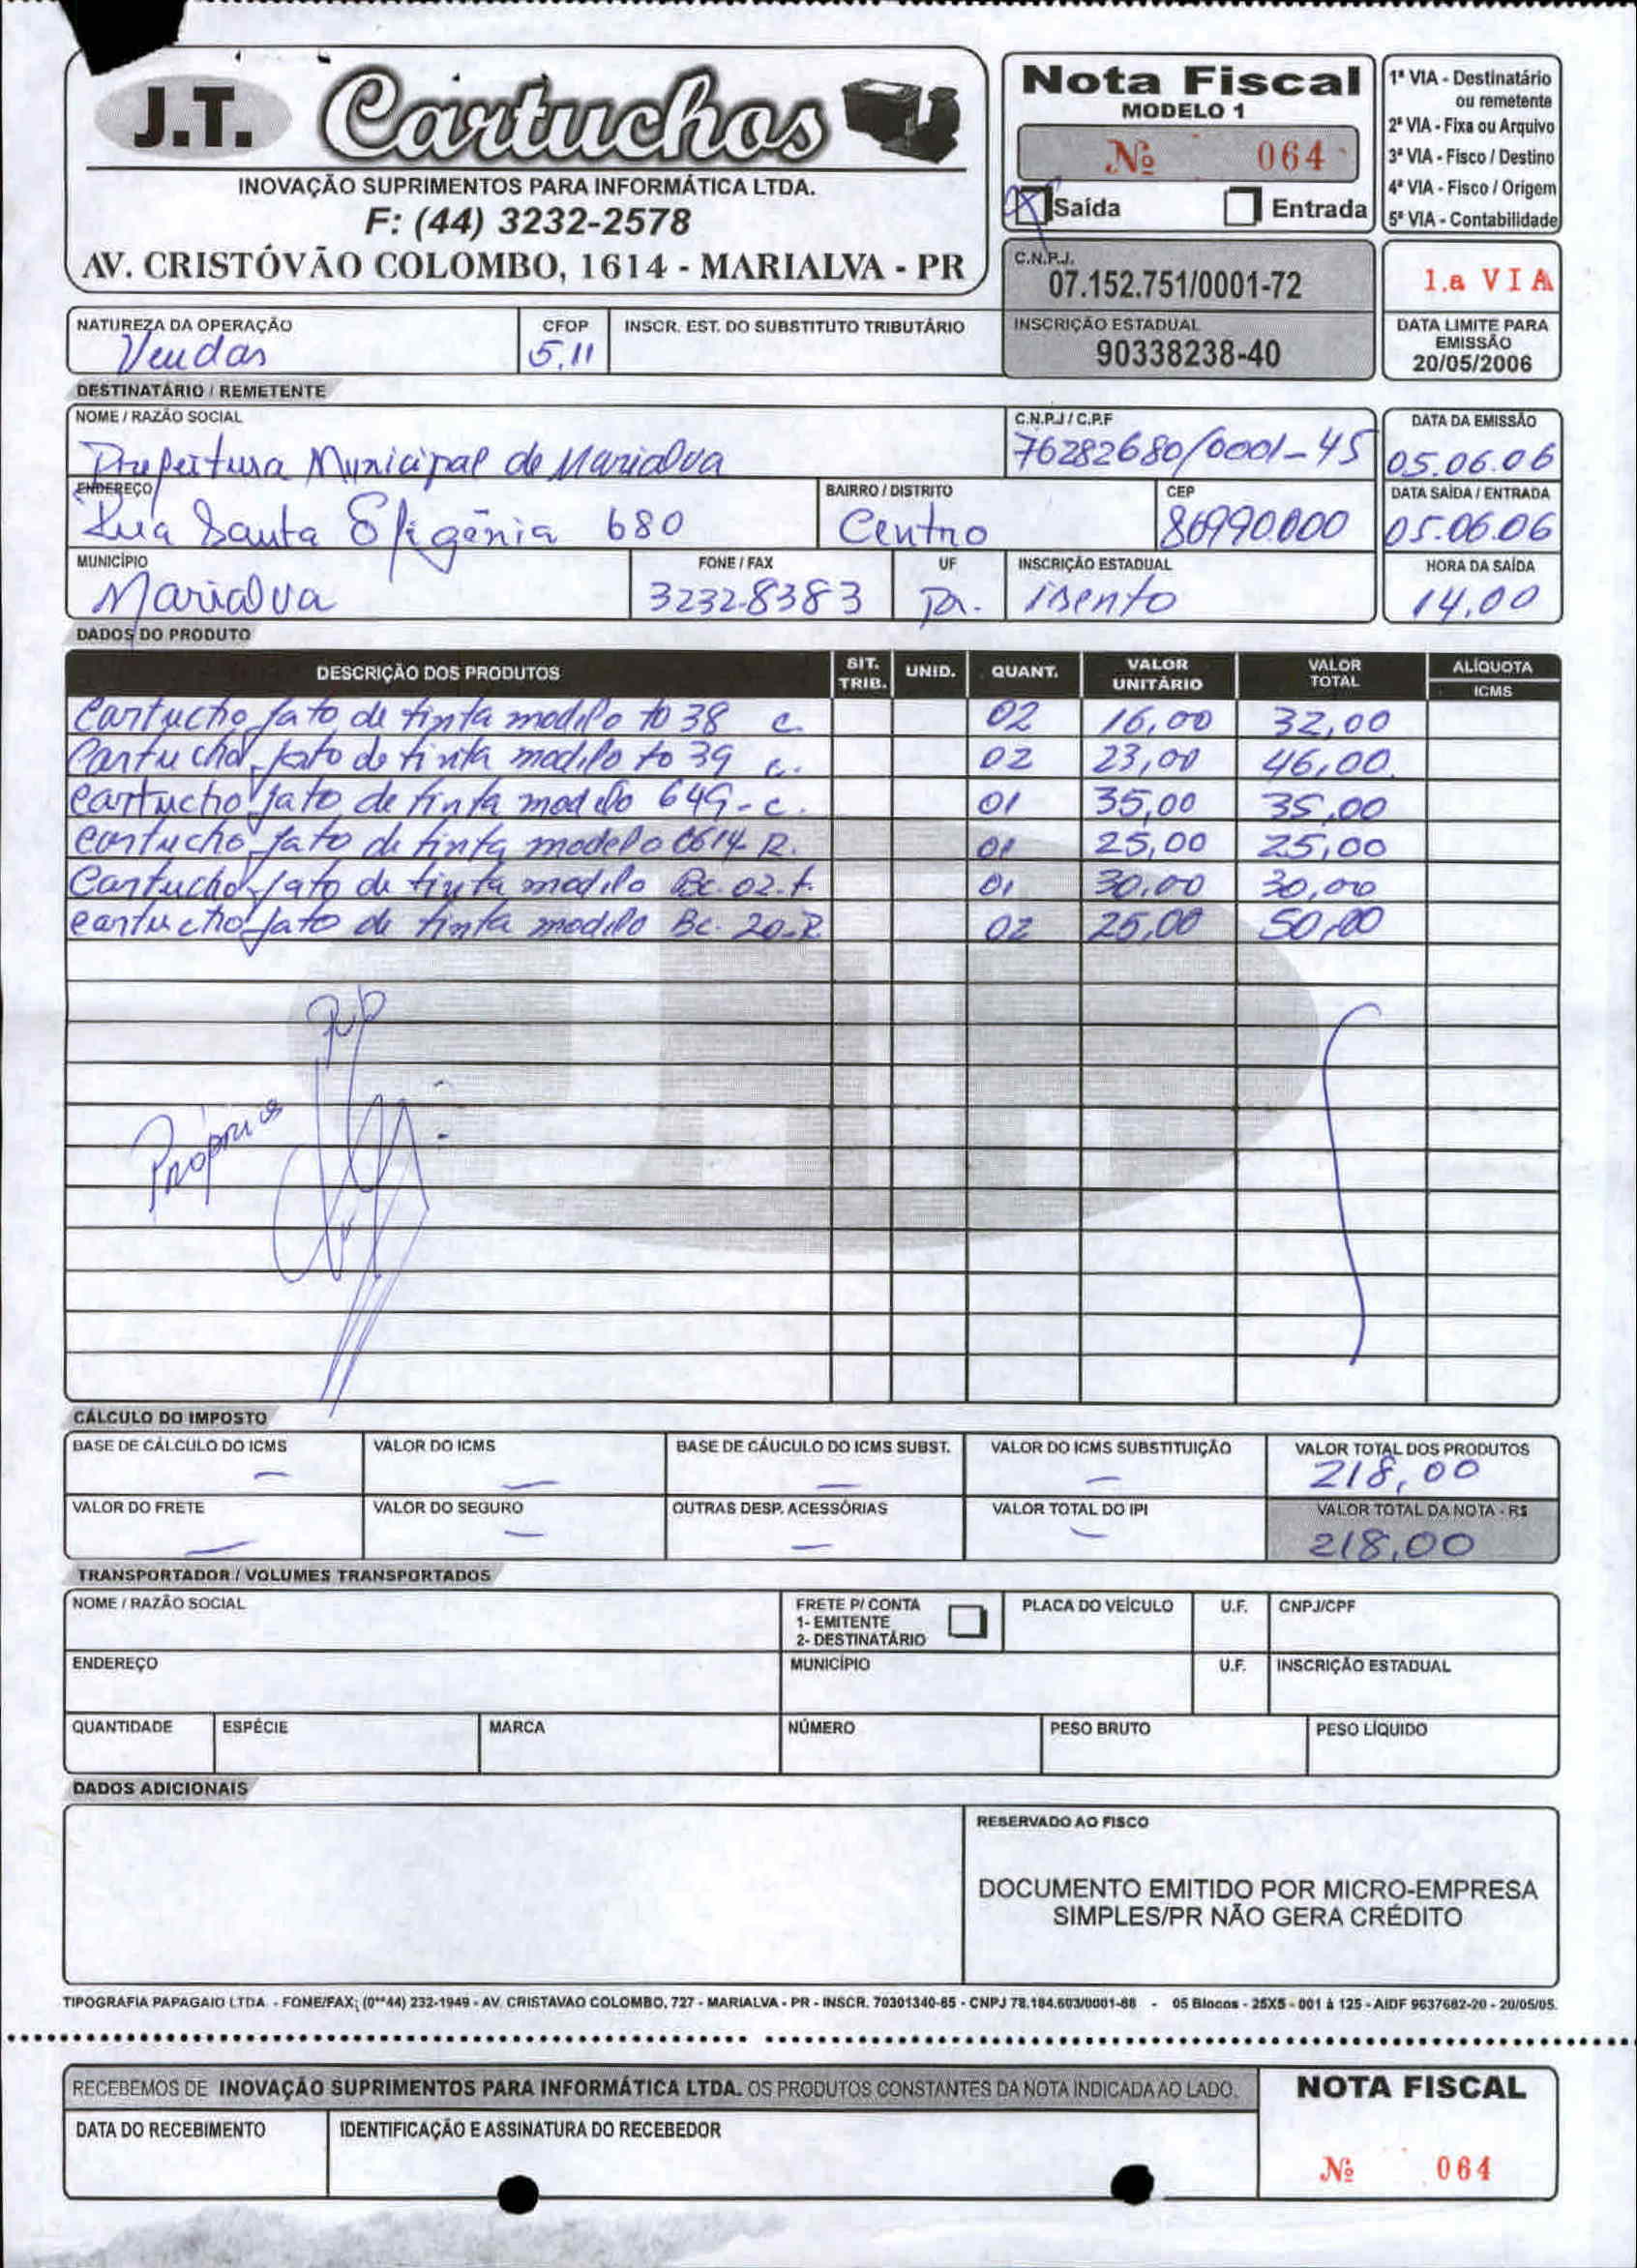 J.T. Cartuchos
INOVAÇÃO SUPRIMENTOS PARA INFORMÁTICA LTDA.
F: (44) 3232-2578
AV. CRISTÓVÃO COLOMBO, 1614 - MARIALVA - PR
Nota Fiscal
MODELO 1
Nº 064
Saída Entrada
1ª VIA - Destinatário
ou remetente
2ª VIA - Fixa ou Arquivo
3ª VIA - Fisco / Destino
4ª VIA - Fisco / Origem
5ª VIA - Contabilidade
C.N.P.J.
07.152.751/0001-72
1.a VIA
NATUREZA DA OPERAÇÃO
Vendas
CFOP
5.11
INSCR. EST. DO SUBSTITUTO TRIBUTÁRIO
INSCRIÇÃO ESTADUAL
90338238-40
DATA LIMITE PARA
EMISSÃO
20/05/2006
DESTINATÁRIO / REMETENTE
NOME / RAZÃO SOCIAL
Prefeitura Municipal de Marialva
C.N.P.J / C.P.F
76282680/0001-45
DATA DA EMISSÃO
05.06.06
ENDEREÇO
Rua Santa Efigênia 680
BAIRRO / DISTRITO
Centro
CEP
86990.000
DATA SAÍDA / ENTRADA
05.06.06
MUNICÍPIO
Marialva
FONE / FAX
3232-8383
UF
Pr.
INSCRIÇÃO ESTADUAL
isento
HORA DA SAÍDA
14,00
DADOS DO PRODUTO
DESCRIÇÃO DOS PRODUTOS SIT. TRIB. UNID. QUANT. VALOR UNITÁRIO VALOR TOTAL ALÍQUOTA ICMS
Cartucho jato de tinta modelo to 38 c. 02 16,00 32,00
Cartucho jato de tinta modelo to 39 c. 02 23,00 46,00
Cartucho jato de tinta modelo 649-c. 01 35,00 35,00
Cartucho jato de tinta modelo 0614 R. 01 25,00 25,00
Cartucho jato de tinta modelo Bc. 02.t. 01 30,00 30,00
Cartucho jato de tinta modelo Bc. 20-R 02 25,00 50,00
Próprios
CÁLCULO DO IMPOSTO
BASE DE CÁLCULO DO ICMS
–
VALOR DO ICMS
–
BASE DE CÁUCULO DO ICMS SUBST.
–
VALOR DO ICMS SUBSTITUIÇÃO
–
VALOR TOTAL DOS PRODUTOS
218,00
VALOR DO FRETE
–
VALOR DO SEGURO
–
OUTRAS DESP. ACESSÓRIAS
–
VALOR TOTAL DO IPI
–
VALOR TOTAL DA NOTA - R$
218,00
TRANSPORTADOR / VOLUMES TRANSPORTADOS
NOME / RAZÃO SOCIAL
FRETE P/ CONTA
1- EMITENTE
2- DESTINATÁRIO
PLACA DO VEÍCULO
U.F.
CNPJ/CPF
ENDEREÇO
MUNICÍPIO
U.F.
INSCRIÇÃO ESTADUAL
QUANTIDADE
ESPÉCIE
MARCA
NÚMERO
PESO BRUTO
PESO LÍQUIDO
DADOS ADICIONAIS
RESERVADO AO FISCO
DOCUMENTO EMITIDO POR MICRO-EMPRESA
SIMPLES/PR NÃO GERA CRÉDITO
TIPOGRAFIA PAPAGAIO LTDA. - FONE/FAX; (0**44) 232-1949 - AV. CRISTAVAO COLOMBO, 727 - MARIALVA - PR - INSCR. 70301340-65 - CNPJ 78.184.603/0001-88 - 05 Blocos - 25X5 - 001 à 125 - AIDF 9637682-20 - 20/05/05.
RECEBEMOS DE INOVAÇÃO SUPRIMENTOS PARA INFORMÁTICA LTDA. OS PRODUTOS CONSTANTES DA NOTA INDICADA AO LADO.
DATA DO RECEBIMENTO
IDENTIFICAÇÃO E ASSINATURA DO RECEBEDOR
NOTA FISCAL
Nº 064